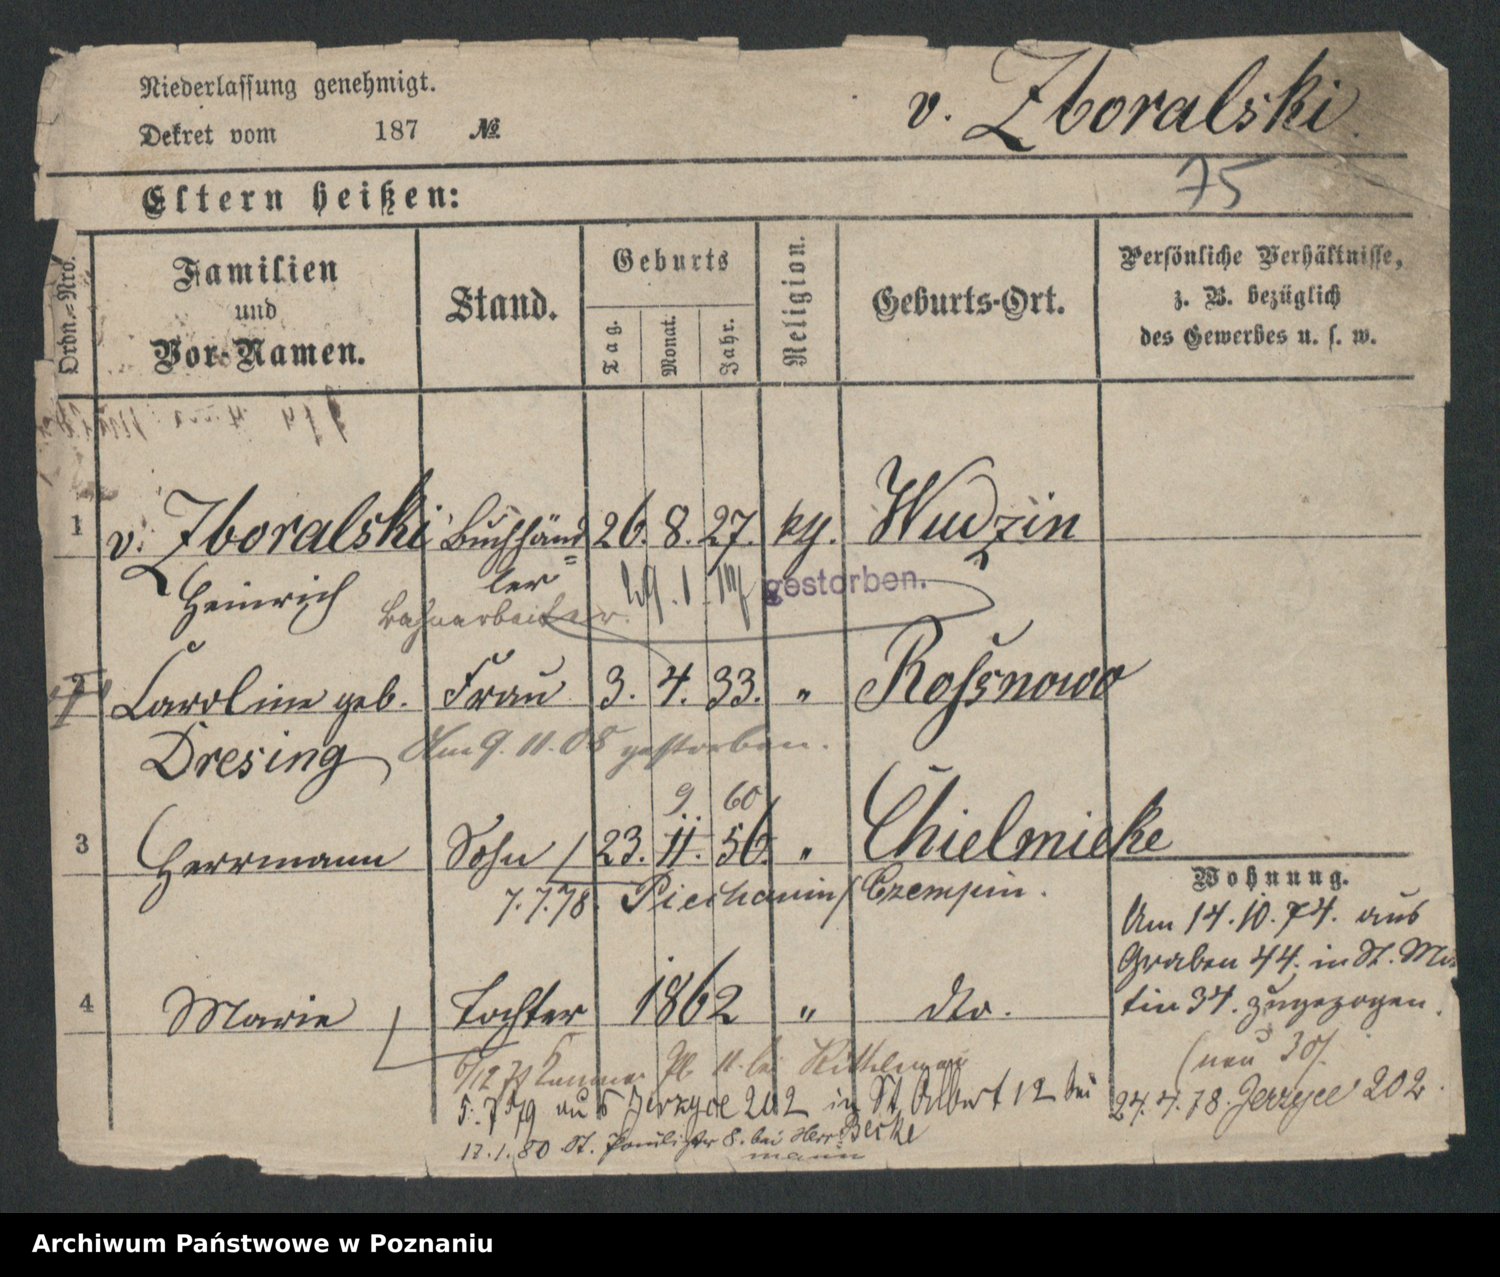 Niederlassung genehmigt.
Dekret vom 187 №
v. Zboralski.
75
Eltern heißen:
Ordn.-Nro.
Familien
und
Vor-Namen.
Stand.
Geburts
Tag.
Monat.
Jahr.
Religion.
Geburts-Ort.
Persönliche Verhältnisse,
z. B. bezüglich
des Gewerbes u. s. w.
1 v. Zboralski Buchhänd= 26. 8. 27. Wudzin
Heinrich ler gestorben.
Bahnarbeiter.
2 Caroline geb. Frau 3. 4. 33. " Rossnowo
Dresing Am 9. 11. 08 gestorben.
9. 60
3 Herrmann Sohn 23. 11. 56. " Chielmicke
7. 7. 78. Piechanin / Czempin.
4 Marie Tochter 1862 " dto.
Wohnung.
Am 14. 10. 74. aus
Graben 44. in St. Mar
tin 34. zugezogen.
(neu 30).
24. 4. 78. Jerzyce 202.
5. 7 79 aus Jerzyce 202 in St. Adbert 12 bei
Becke
12. 1. 80 St. 8. bei Herr
mann
Archiwum Państwowe w Poznaniu